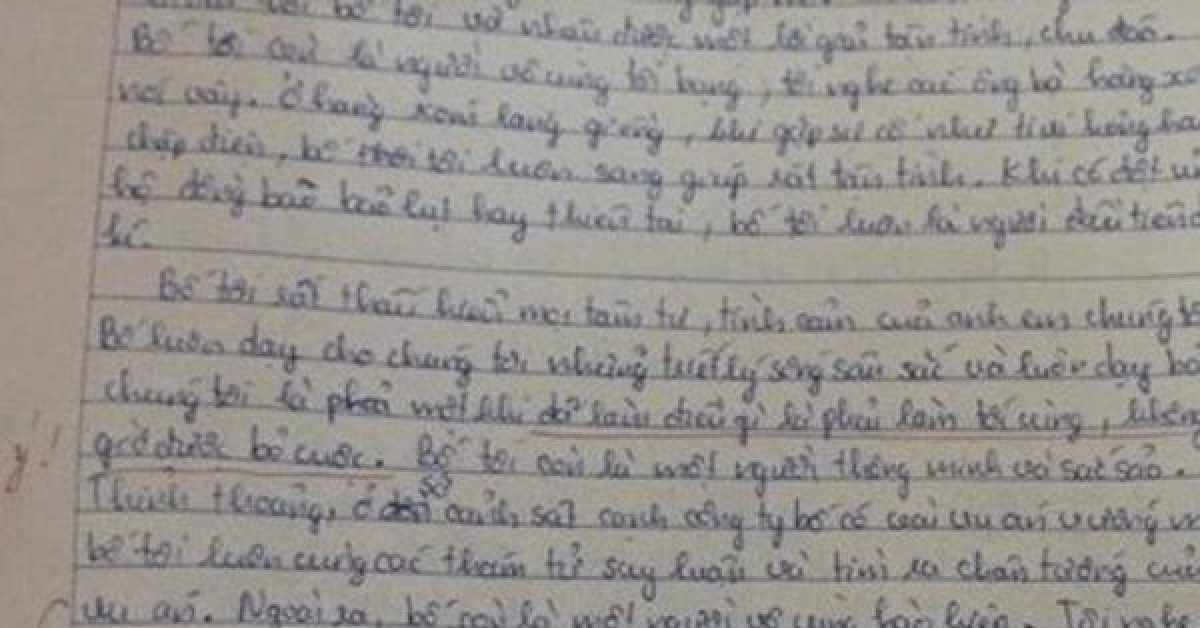 bố tôi và nhau dưới một lời giải tận tình, chu đáo.
Bố tôi còn là người vô cùng tốt bụng, tôi nghe các ông bà hàng xó
nói vậy. Ở hàng xóm láng giềng, khi gặp sự cố như tivi hỏng ha
chập điện, bố tôi luôn sang giúp rất tận tình. Khi có đợt ủ
hộ đồng bào bão lụt hay thiên tai, bố tôi luôn là người đầu tiên
kí.
Bố tôi rất thấu hiểu mọi tâm tư, tình cảm của anh em chúng tô
Bố luôn dạy cho chúng tôi những triết lý sống sâu sắc và luôn dạy bả
chúng tôi là phải một khi đã làm điều gì là phải làm tới cùng, khôn
giờ được bỏ cuộc. Bố tôi còn là một người thông minh và sắc sảo.
ý!
Thỉnh thoảng, ở sở cảnh sát cạnh công ty bố có vài vụ án vướng m
bố tôi luôn cùng các thám tử suy luận và tìm ra chân tướng củ
vụ án. Ngoài ra, bố còn là một người vô cùng hào hiệp. Tôi nghe